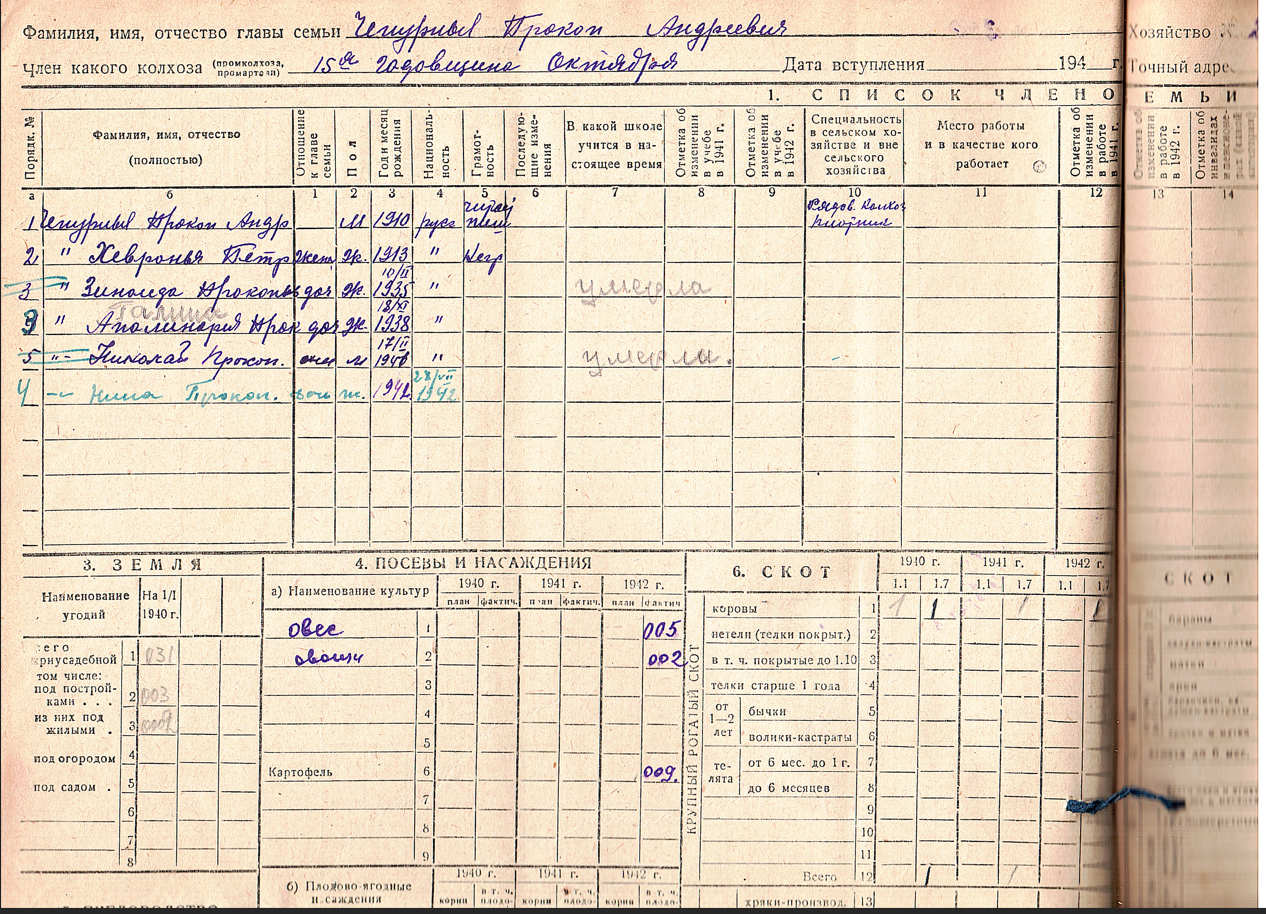 Фамилия, имя, отчество главы семьи Чепурных Прокоп Андреевич
Хозяйство №
Член какого колхоза (промколхоза, промартели) 15ая годовщина Октября Дата вступления 194 г.
Точный адре
1. СПИСОК ЧЛЕНО
ЕМЬИ
Порядк. №
Фамилия, имя, отчество (полностью)
Отношение к главе семьи
Пол
Год и месяц рождения
Националь-ность
Грамот-ность
Последую-щие изме-нения
В какой школе учится в на-стоящее время
Отметка об изменении в учебе в 1941 г.
Отметка об изменении в учебе в 1942 г.
Специальность в сельском хо-зяйстве и вне сельского хозяйства
Место работы и в качестве кого работает
Отметка об изменении в работе в 1941 г.
изменении в работе в 1942 г.
Отметка об инвалидах
а б 1 2 3 4 5 6 7 8 9 10 11 12 13 14
1 Чепурных Прокоп Андр м 1910 русс читает пиш Рядов. колхоз плотник
2 " Хевронья Петр жена ж. 1913 " негр
3 " Зинаида Прокопьев доч ж. 10/II 1935 " умерла
Галина
3 " Аполинария Прок доч ж. 18/XI 1938 "
5 -"- Николай Прокоп. сын м 17/II 1940 " умерли.
4 -"- Нина Прокоп. дочь ж. 1942 28/VII 1942
3. ЗЕМЛЯ
Наименование угодий
На 1/I 1940 г.
сего приусадебной 1 031
том числе:
под построй-ками . . . 2 003
из них под жилыми . 3
под огородом 4
под садом . 5
6
7
8
4. ПОСЕВЫ И НАСАЖДЕНИЯ
а) Наименование культур
1940 г. 1941 г. 1942 г.
план фактич. план фактич. план фактич
овес 1 005
овощи 2 002
3
4
5
Картофель 6 009.
7
8
9
б) Плодово-ягодные насаждения
1940 г. 1941 г. 1942 г.
корни в т. ч. плодо- корни в т. ч. плодо- корни в т. ч. плодо-
6. СКОТ
1940 г. 1941 г. 1942 г.
1.1 1.7 1.1 1.7 1.1 1.7
КРУПНЫЙ РОГАТЫЙ СКОТ
коровы 1 1 1 1 1
нетели (телки покрыт.) 2
в т. ч. покрытые до 1.10 3
телки старше 1 года 4
от 1—2 лет
бычки 5
волики-кастраты 6
те-лята
от 6 мес. до 1 г. 7
до 6 месяцев 8
9
10
11
Всего 12 1 1
хряки-производ. 13
СКОТ
бараны
матки